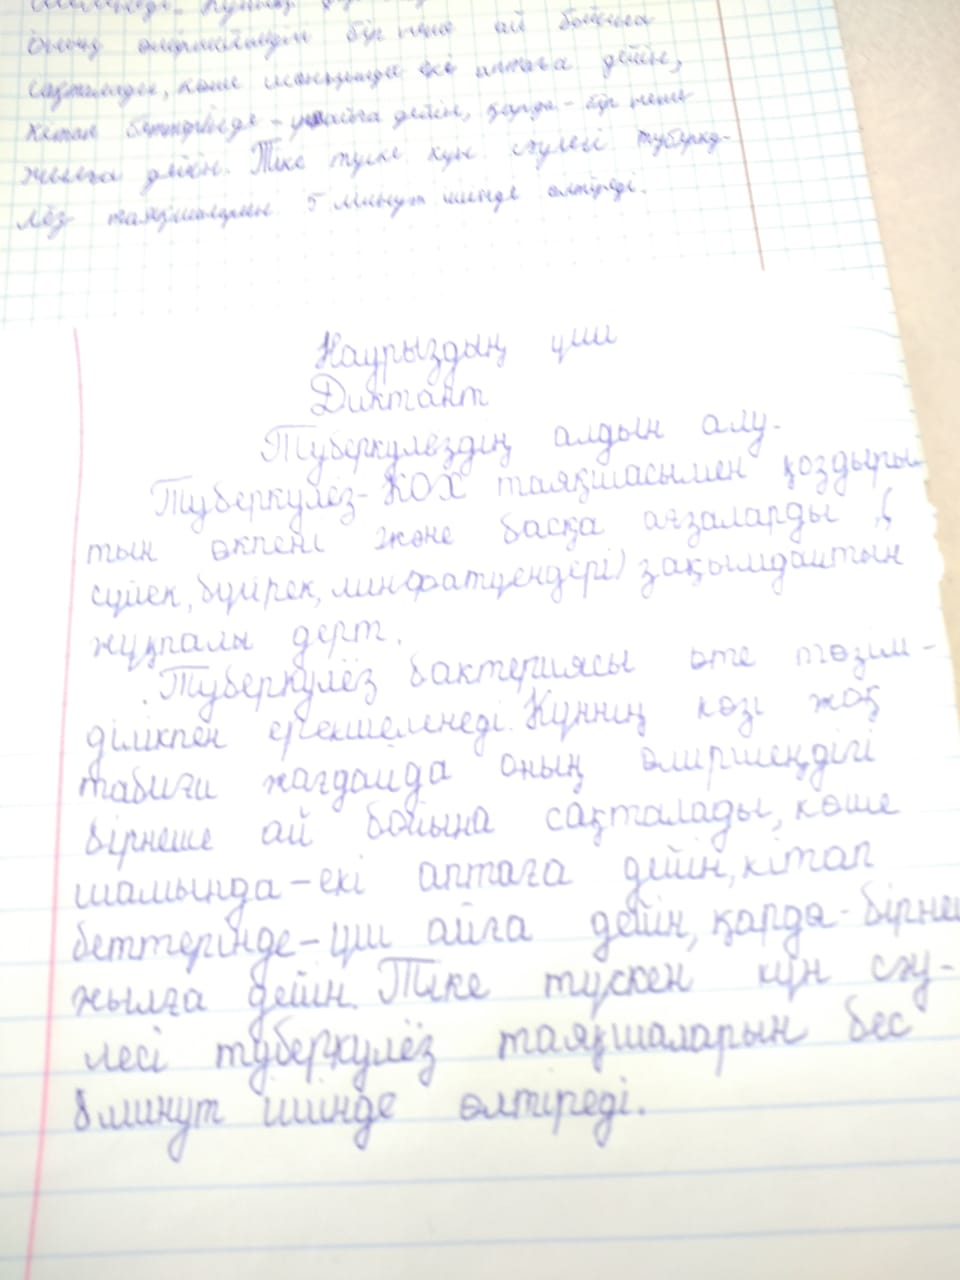 бірнеше ай бойына
сақталады, көше шаңында екі аптаға дейін,
Кітап беттерінде - үш айға дейін, қарда - бір неше
жылға дейін. Тіке түске күн сәулесі туберку-
лёз таяқшаларын 5 минут ішінде өлтіреді.
Наурыздың үші
Диктант
Туберкулёздің алдын алу.
Туберкулёз - КОХ таяқшасымен қоздыры
тын өкпені және басқа ағзаларды, (
сүйек, бүйрек, лимфатүендері) зақымдайтын
жұқпалы дерт.
Туберкулёз бактериясы өте төзім -
ділікпен ерекшеленеді. Күннің көзі жоқ
табиғи жағдайда оның өміршеңдігі
бірнеше ай бойына сақталады, көше
шамында - екі аптаға дейін, кітап
беттерінде - үш айға дейін, қарда - бірне
жылға дейін. Тіке түскен күн сәу-
лесі туберкулёз таяқшаларын бес
минут ішінде өлтіреді.